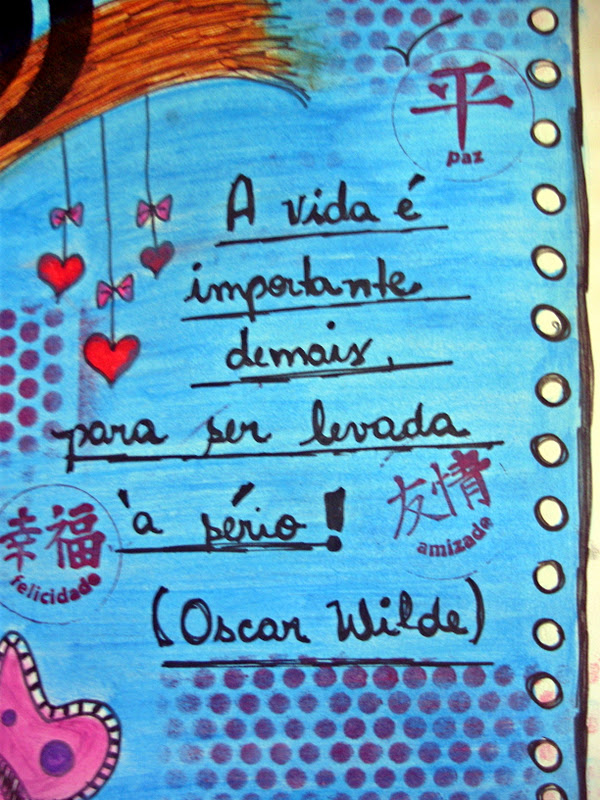 平
paz
A vida é
importante
demais,
para ser levada
à sério!
友情
amizade
幸福
felicidade
(Oscar Wilde)